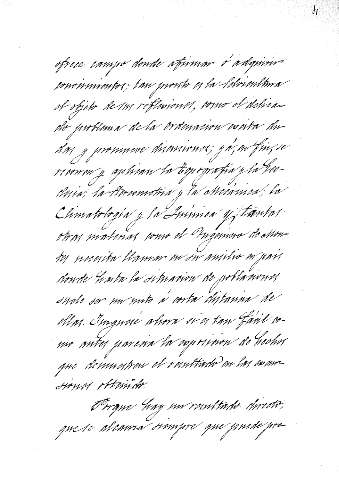 ofrece campo donde afirmar ó adquirir
conocimientos; tan pronto es la Selvicultura
el objeto de sus reflexiones, como el delica-
do problema de la ordenacion suscita du-
das y promueve discusiones; y á, en fin, se
recorren y aplican la Topografía y la
la Xilometria y la Mecánica; la
Climatología y la Química y tantas
otras materias como el Ingeniero de Mon-
tes necesita llamar en su ausilio en pais
donde hasta la situacion de poblaciones
suele ser un mito á corta distancia de
ellas. ahora si es tan fácil co-
mo antes parecia la esposicion de hechos
que demuestren el resultado en las escur-
siones obtenido
Porque hay un resultado directo,
que se alcanza siempre que puede pre-